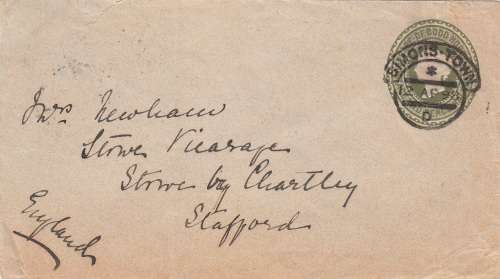 OF GOOD
SIMONS-TOWN
Mrs Newham
Stowe Vicarage
Stowe by Chartley
Stafford
England